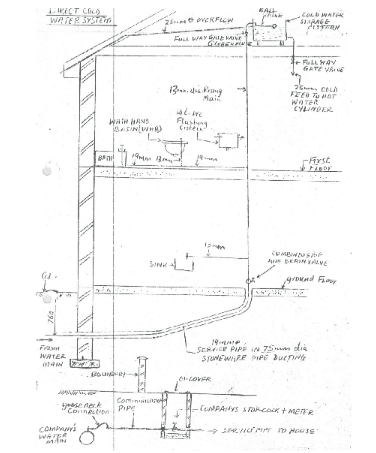 DIRECT COLD
WATER SYSTEM
25mm Ø OVERFLOW
BALL
VALVE
COLD WATER
STORAGE
CISTERN
FULL WAY GATE VALVE
FULL WAY
GATE VALVE
25mm COLD
FEED TO HOT
WATER
CYLINDER
13mm dia Rising
Main
WASH HAND
BASIN (WHB)
Flushing
Cistern
BATH
19mm
13mm
13mm
FIRST
FLOOR
SINK
13mm
COMBINED S/V
AND DRAIN VALVE
GROUND FLOOR
GL
760
FROM
WATER
MAIN
19mm
SERVICE PIPE IN 75mm dia
STONEWARE PIPE DUCTING
BOUNDARY
CI COVER
goose neck
Connection
COMMUNICATION
PIPE
COMPANYS STOP COCK + METER
COMPANYS
WATER
MAIN
SERVICE PIPE TO HOUSE